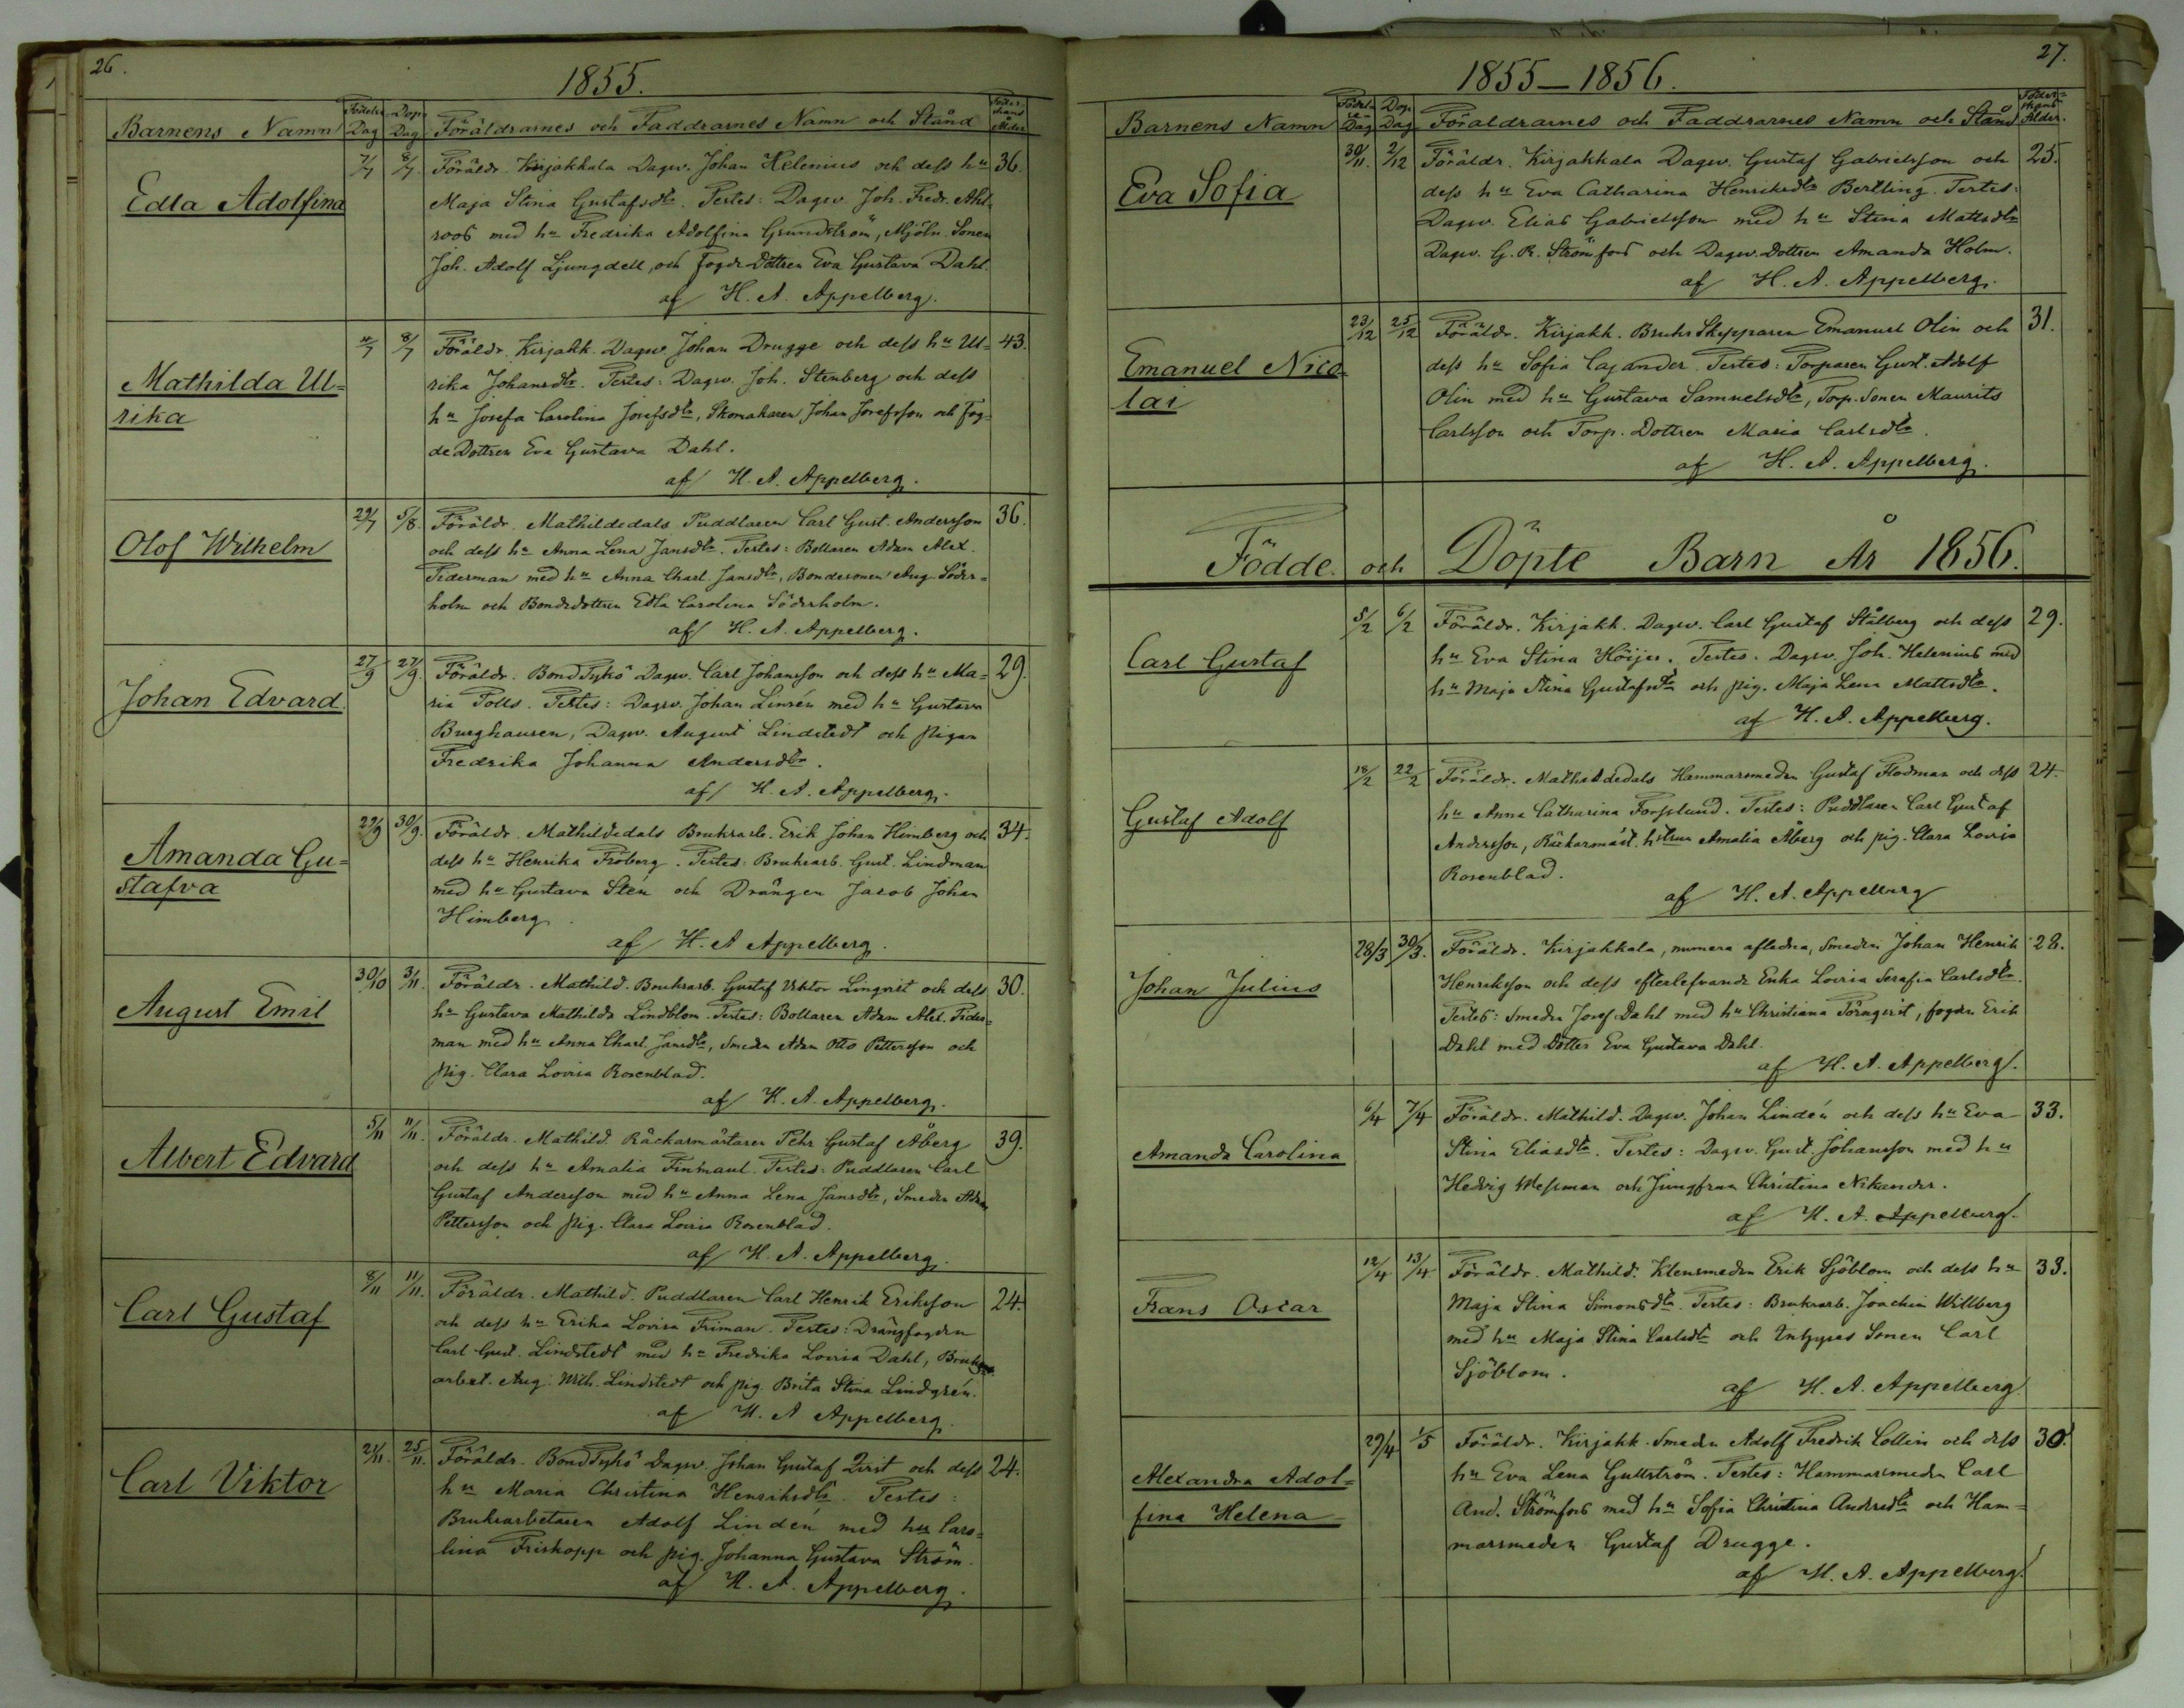 26.
1855.
Barnens Namn
Födelse Dag
Dop Dag
Föräldrarnes och Faddrarnes Namn och Stånd
Föder-skans Ålder
Edla Adolfina
7/7 8/7
Föräldr. Kirjakkala Dagsv. Johan Helenius och dess hu 36.
Maja Stina Gustafsdtr. Testes: Dagsv. Joh. Fredr. Ahl-
roos med hu Fredrika Adolfina Grundström, Mjöln. Sonen
Joh. Adolf Ljungdell, och Fogde Dottren Eva Gustava Dahl.
af H. A. Appelberg.
Mathilda Ul=
rika
8/7
Föräldr. Kirjakk. Dagsv. Johan Drugge och dess hu Ul= 43.
rika Johansdtr. Testes: Dagsv. Joh. Stenberg och dess
hu Josefa Carolina Josefsdtr, Skomakaren Johan Josefsson och Fog=
de Dottren Eva Gustava Dahl.
af H. A. Appelberg.
Olof Wilhelm
29/7 5/8.
Föräldr. Mathildedals Puddlaren Carl Gust. Andersson 36.
och dess hu Anna Lena Jansdtr. Testes: Bollaren Adam Alex.
Tiderman med hu Anna Charl. Jansdtr, Bondesonen Aug. Söder=
holm och Bondedottren Edla Carolina Söderholm.
af H. A. Appelberg.
Johan Edvard
27/9 27/9.
Föräldr. Bond Tykö Dagsv. Carl Johansson och dess hu Ma= 29.
ria Polls. Testes: Dagsv. Johan Linrén med hu Gustava
Burghausen, Dagsv. August Lindstedt och pigan
Fredrika Johanna Andersdtr.
af H. A. Appelberg.
Amanda Gu=
stafva
29/9 30/9.
Föräldr. Mathildedals Bruksarb. Erik Johan Himberg och 34.
dess hu Henrika Fröberg. Testes: Bruksarb. Gust. Lindman
med hu Gustava Stén och Drängen Jacob Johan
Himberg.
af H. A Appelberg.
August Emil
30/10 3/11.
Föräldr. Mathild. Bruksarb. Gustaf Viktor Linqvist och dess 30.
hu Gustava Mathilda Lindblom. Testes: Bollaren Adam Alex. Tider=
man med hu Anna Charl. Jansdtr, Smeden Adam Otto Pettersson och
pig. Clara Lovisa Rosenblad.
af H. A. Appelberg.
Albert Edvard
5/11 11/11.
Föräldr. Mathild. Räckarmästaren Pehr Gustaf Åberg 39.
och dess hu Amalia Finmaul. Testes: Puddlaren Carl
Gustaf Andersson med hu Anna Lena Jansdtr, Smeden Adam
Pettersson och pig. Clara Lovisa Rosenblad.
af H. A. Appelberg.
Carl Gustaf
8/11 11/11.
Föräldr. Mathild. Puddlaren Carl Henrik Eriksson 24.
och dess hu Erika Lovisa Friman. Testes: Drängfogden
Carl Gust. Lindstedt med hu Fredrika Lovisa Dahl, Bruks
arbet. Aug. Wilh. Lindstedt och pig. Brita Stina Lindgrén.
af H. A Appelberg.
Carl Viktor
21/11. 25/11.
Föräldr. Bond Tykö Dagsv. Johan Gustaf Qvist och dess 24.
hu Maria Christina Henriksdtr. Testes:
Bruksarbetaren Adolf Lindén med hu Caro=
lina Friskopp och pig. Johanna Gustava Ström.
af H. A. Appelberg.
27.
1855–1856.
Barnens Namn
Födelse-Dag
Dop Dag
Föräldrarnes och Faddrarnes Namn och Stånd
Föder=skans Ålder.
Eva Sofia
30/11. 2/12
Föräldr. Kirjakkala Dagsv. Gustaf Gabrielsson och 25.
dess hu Eva Catharina Henriksdtr Bertling. Testes:
Dagsv. Elias Gabrielsson med hu Stina Mattsdtr
Dagsv. G. R. Strömfors och Dagsv. Dottren Amanda Holm.
af H. A. Appelberg.
Emanuel Nico=
lai
23/12 25/12
Föräldr. Kirjakk. Bruks Skepparen Emanuel Olin och 31.
dess hu Sofia Cajander. Testes: Torparen Gust. Adolf
Olin med hu Gustava Samuelsdtr, Torp. Sonen Maurits
Carlsson och Torp. Dottren Maria Carlsdtr.
af H. A. Appelberg.
Födde och Döpte Barn År 1856.
Carl Gustaf
5/2 6/2
Föräldr. Kirjakk. Dagsv. Carl Gustaf Stålberg och dess 29.
hu Eva Stina Höijer. Testes. Dagsv. Joh. Helenius med
hu Maja Stina Gustafsdtr och pig. Maja Lena Mattsdtr.
af H. A. Appelberg.
Gustaf Adolf
18/2 22/2
Föräldr. Mathildedals Hammarsmeden Gustaf Flodman och dess 24.
hu Anna Catharina Forsslund. Testes: Puddlaren Carl Gustaf
Andersson, Räckarmäst. hstrun Amalia Åberg och pig. Clara Lovisa
Rosenblad.
af H. A. Appelberg
Johan Julius
28/3 30/3.
Föräldr. Kirjakkala, numera afledna, Smeden Johan Henrik 28.
Henriksson och dess efterlefvande Enka Lovisa Serafia Carlsdtr.
Testes: Smeden Josef Dahl med hu Christiana Törnqvist, fogden Erik
Dahl med Dotter Eva Gustava Dahl.
af H. A. Appelberg.
Amanda Carolina
6/4 7/4
Föräldr. Mathild. Dagsv. Johan Lindén och dess hu Eva 33.
Stina Eliasdtr. Testes: Dagsv. Gust. Johansson med hu
Hedvig Wessman och Jungfrun Christina Nikander.
af H. A. Appelberg.
Frans Oscar
12/4 13/4
Föräldr. Mathild. Klensmeden Erik Sjöblom och dess hu 33.
Maja Stina Simonsdtr. Testes: Bruksarb. Joachim Willberg
med hu Maja Stina Carlsdtr och Sonen Carl
Sjöblom.
af H. A. Appelberg
Alexandra Adol=
fina Helena
29/4 1/5
Föräldr. Kirjakk. Smeden Adolf Fredrik Collin och dess 30.
hu Eva Lena Gullström. Testes: Hammarsmeden Carl
And. Strömfors med hu Sofia Christina Andersdtr och Ham=
marsmeden Gustaf Drugge.
af H. A. Appelberg.